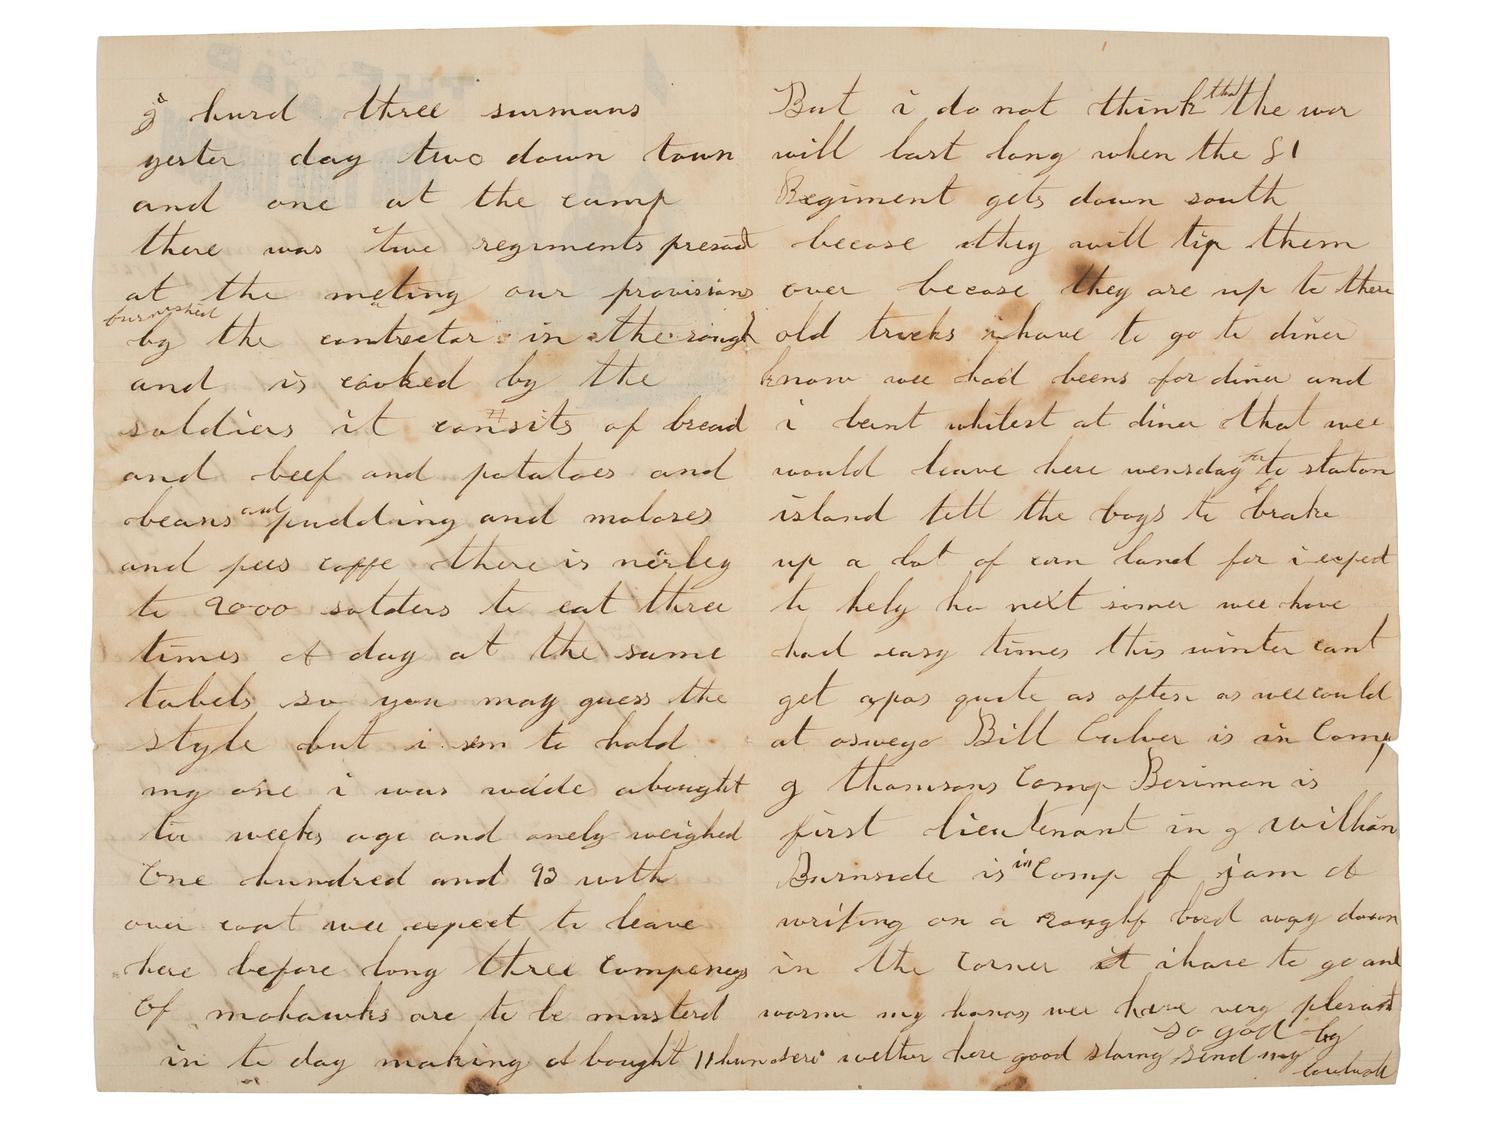 i hurd three surmans
yester day two down town
and one at the camp
there was two regiments presant
at the meting our provisions
furnished
by the contractor in the rough
and is cooked by the
soldiers it consits of bread
and beef and potatoes and
beans and pudding and molases
and pees coffe there is nerley
to 2000 solders to eat three
times a day at the same
tabels so you may guess the
style but i em to hold
my one i was wade abought
tw weeks ago and onely weighed
One hundred and 93 with
over coat wee expect to leave
here before long three compeneys
Of mohawks are to be musterd
in to day making abought 11 hunderd
But i do not think that the wor
will last long when the 81
Regiment gets down south
becose they will tip them
over becose they are up to there
old tricks i have to go to diner
know wee had beens for diner and
i lernt whilest at diner that wee
would leave here wensday for to staton
island tell the boys to brake
up a lot of corn land for i expect
to help ho next somer wee have
had easy times this winter cant
get a pas quite as often as wee could
at oswego Bill Culver is in Comp
g thomsons Comp Beriman is
first lieutenant in g William
Burnside is in Comp f j am at
writing on a rough bord way down
in the corner i have to go and
warme my hands wee have very plesant
welther here good slaing send my
so god by